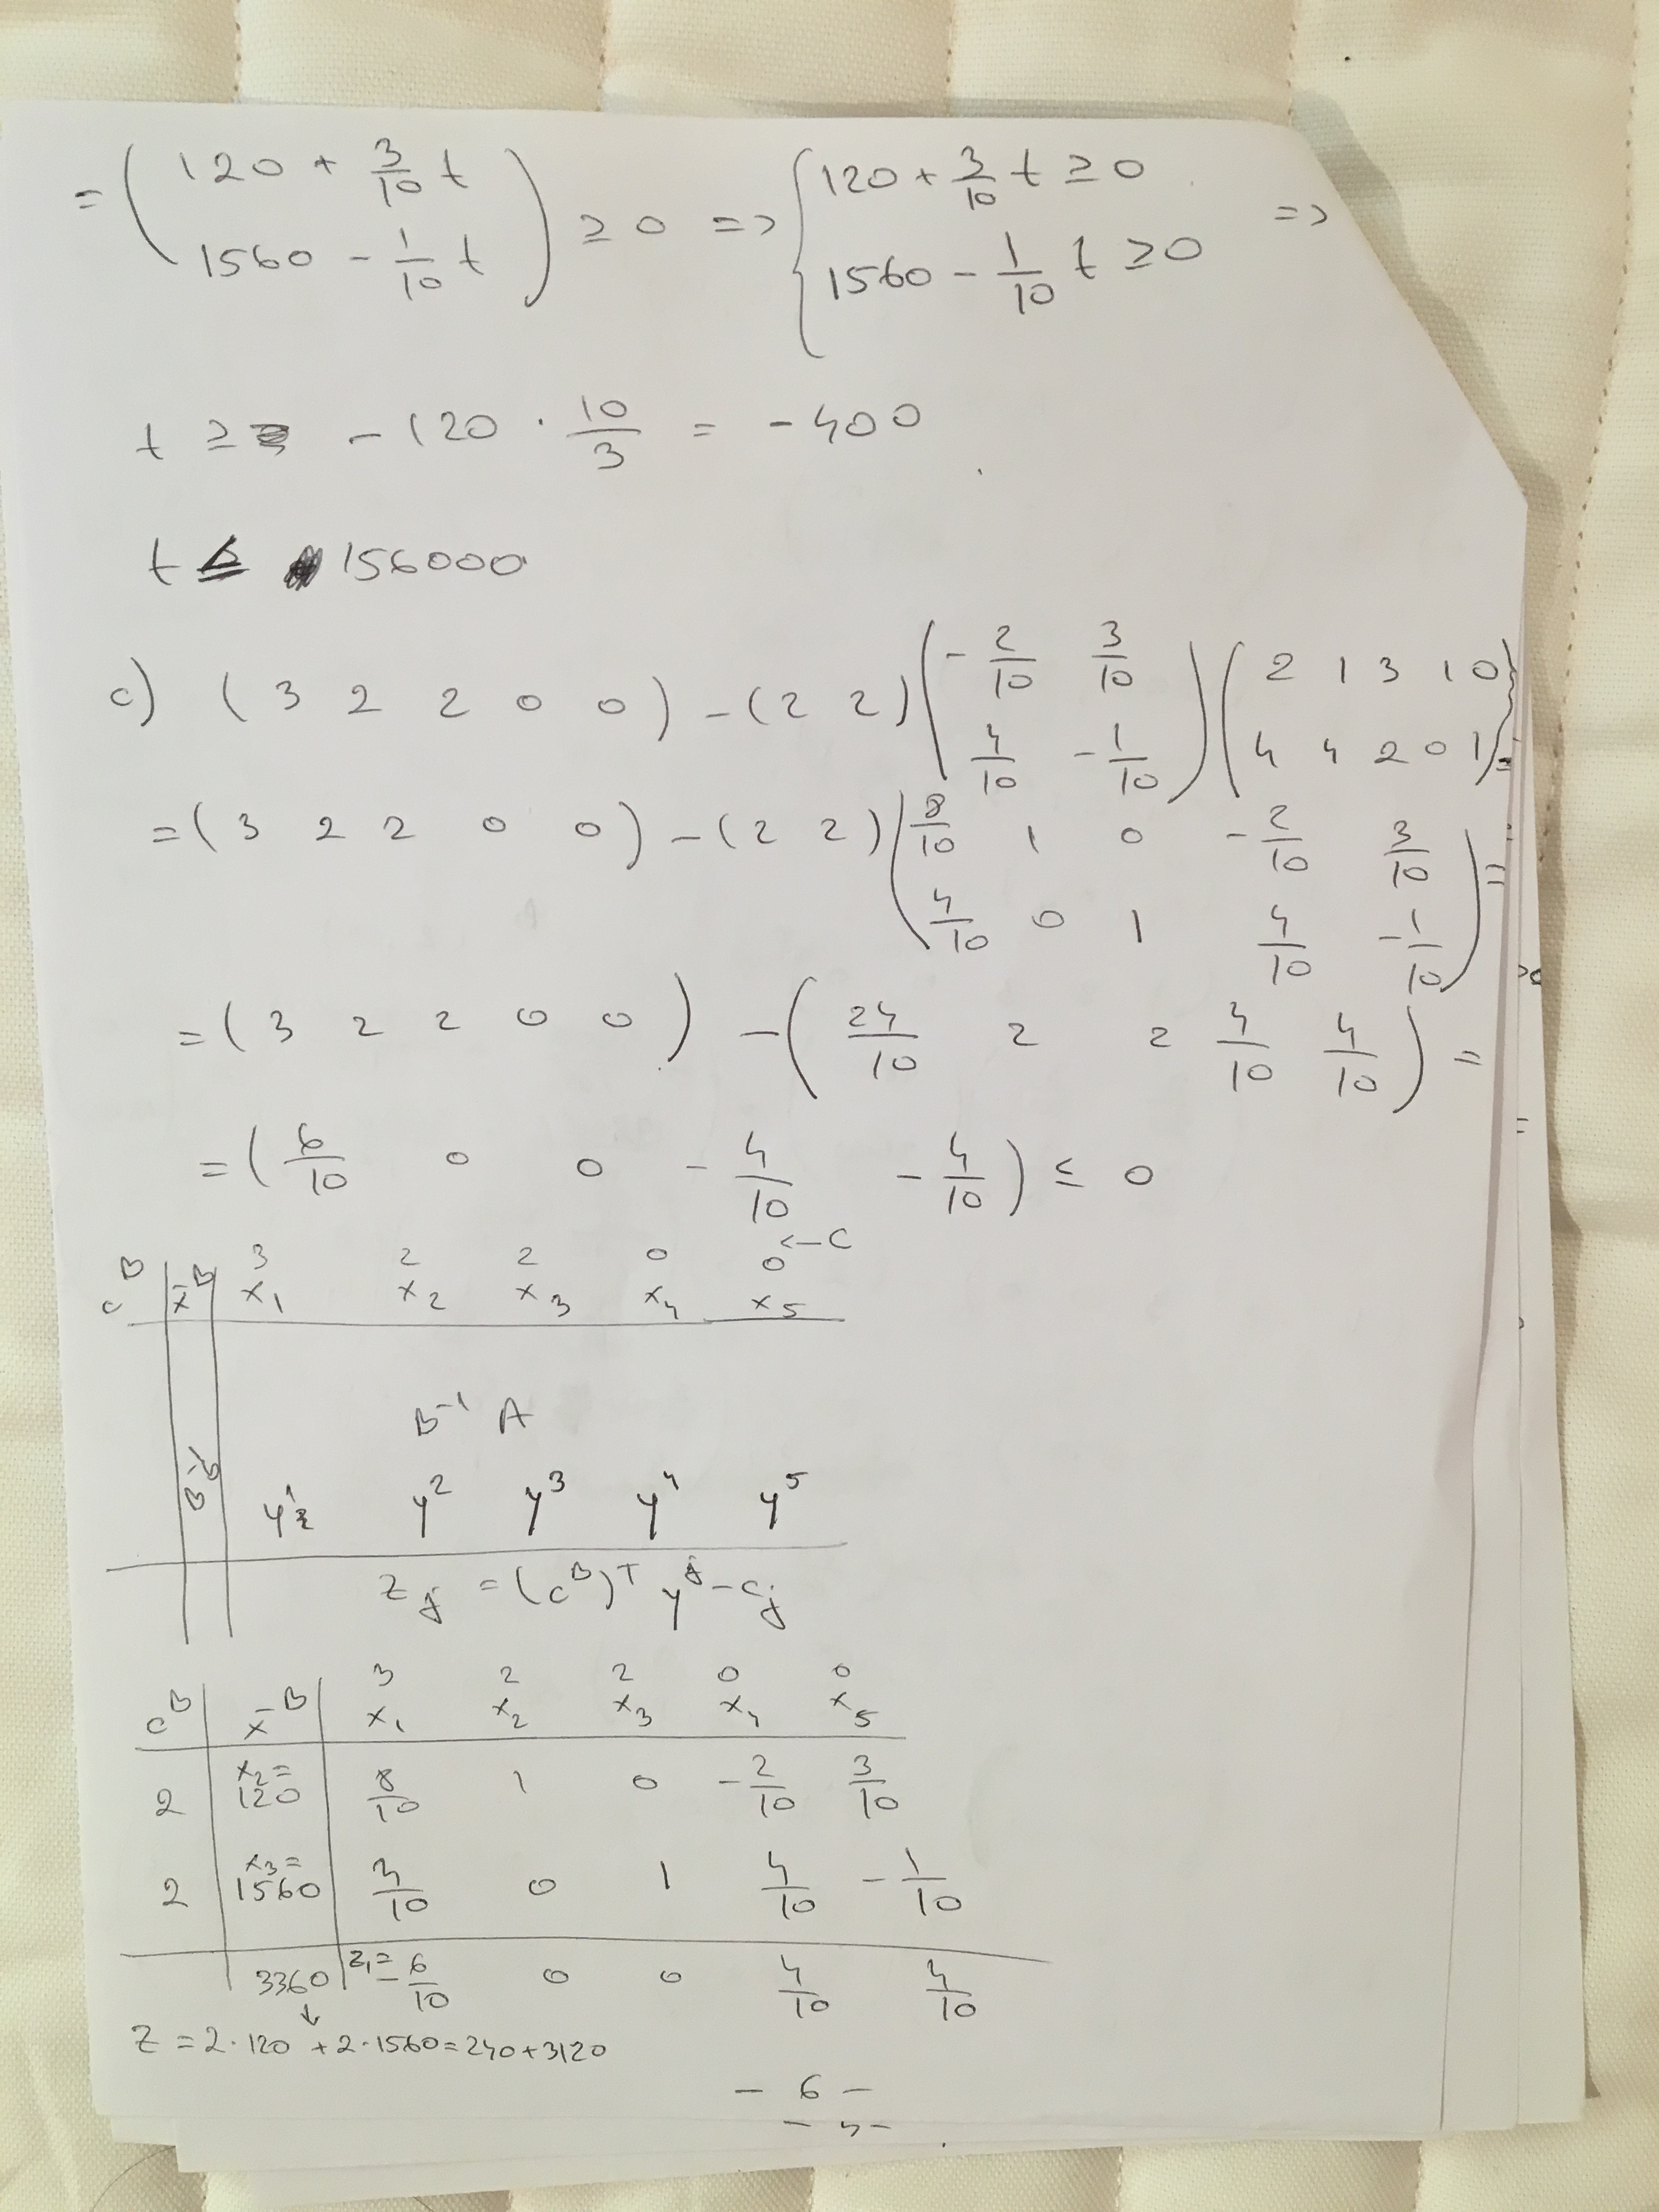 = ( 120 + 3/10 t ) ≥ 0 => { 120 + 3/10 t ≥ 0 =>
( 1560 - 1/10 t ) { 1560 - 1/10 t ≥ 0
t ≥ -120 · 10/3 = -400
t ≤ 156000
c) ( 3 2 2 0 0 ) - ( 2 2 ) ( -2/10 3/10 ) ( 2 1 3 1 0 )
( 4/10 -1/10 ) ( 4 4 2 0 1 ) =
= ( 3 2 2 0 0 ) - ( 2 2 ) ( 8/10 1 0 -2/10 3/10 ) =
( 4/10 0 1 4/10 -1/10 )
= ( 3 2 2 0 0 ) - ( 24/10 2 2 4/10 4/10 ) =
= ( 6/10 0 0 -4/10 -4/10 ) ≤ 0
3 2 2 0 0 <- C
c^B x̄^B x1 x2 x3 x4 x5
B^-1 A
B^-1 b y^1 y^2 y^3 y^4 y^5
z_j = (c^B)^T y^j - c_j
3 2 2 0 0
c^B x̄^B x1 x2 x3 x4 x5
x2 =
2 120 8/10 1 0 -2/10 3/10
x3 =
2 1560 4/10 0 1 4/10 -1/10
3360 z1 = -6/10 0 0 4/10 4/10
↓
Z = 2·120 + 2·1560 = 240 + 3120
- 6 -
- 4 -